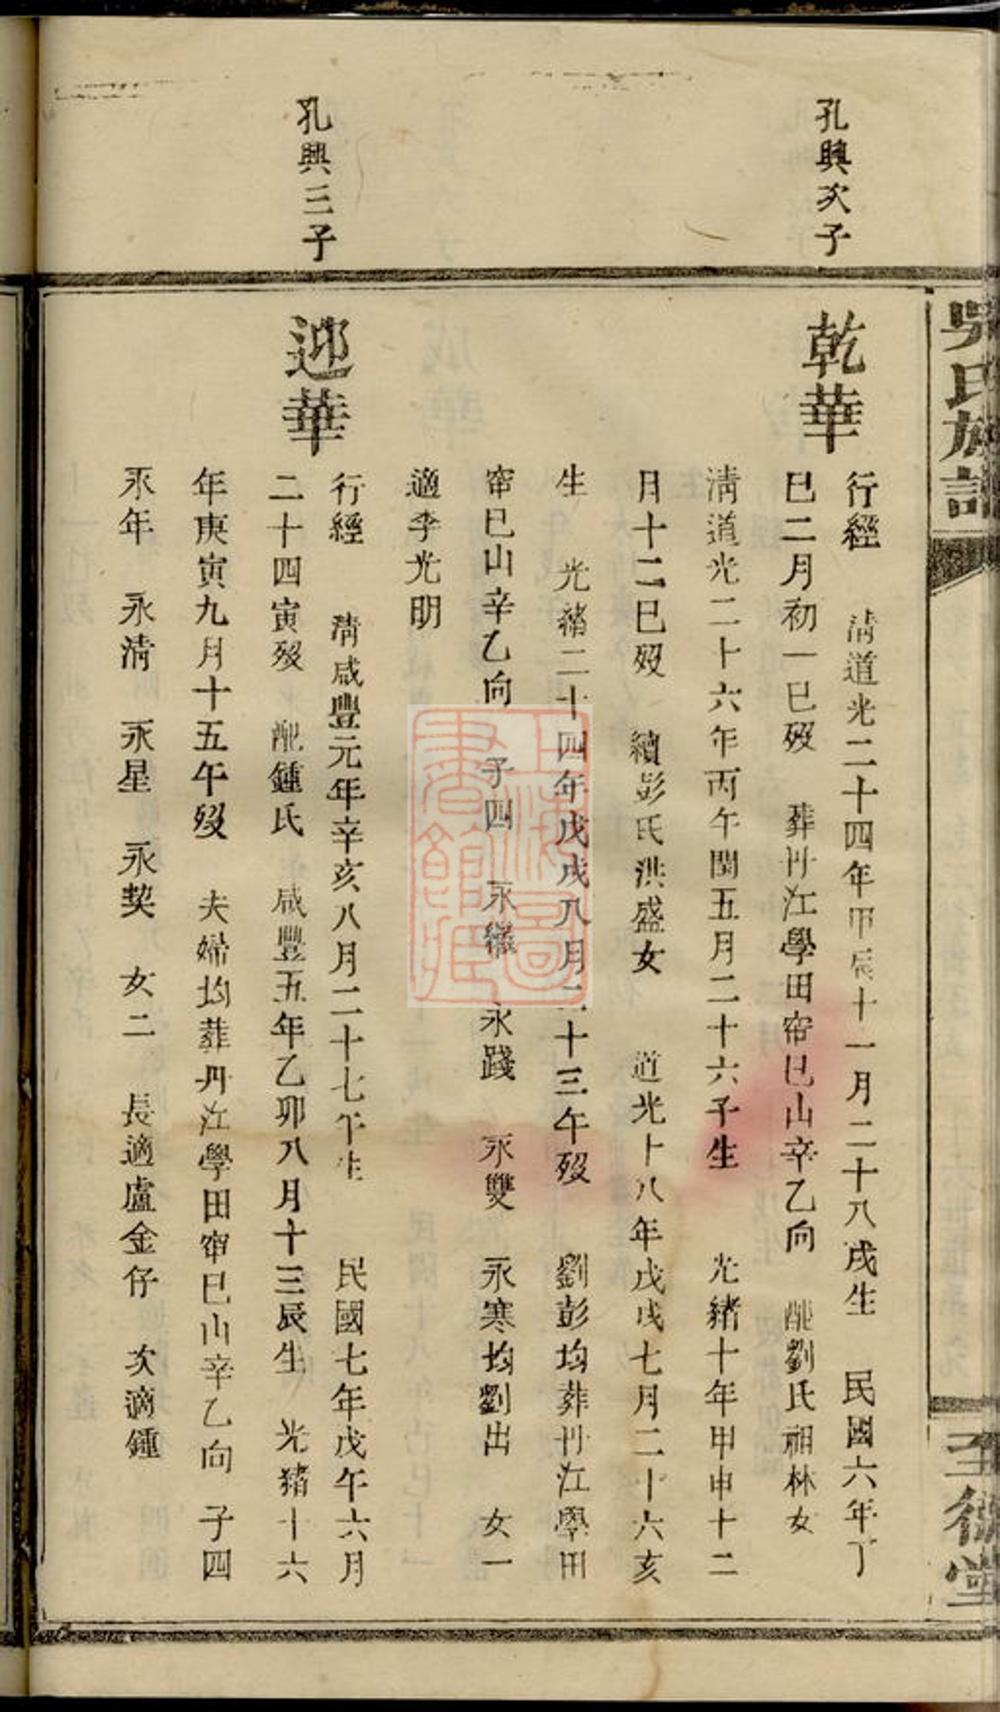 吳氏族譜
至德堂
孔興次子
乾華
行經 清道光二十四年甲辰十一月二十八戌生 民國六年丁
巳二月初一巳歿 葬丹江學田帘巳山辛乙向 配劉氏祖林女
清道光二十六年丙午閏五月二十六子生 光緒十年甲申十二
月十二巳歿 續彭氏洪盛女 道光十八年戊戌七月二十六亥
生 光緒二十四年戊戌八月二十三午歿 劉彭均葬丹江學田
帘巳山辛乙向 子四 永繼 永踐 永雙 永寒均劉出 女一
適李光明
孔興三子
迎華
行經 清咸豐元年辛亥八月二十七午生 民國七年戊午六月
二十四寅歿 配鍾氏 咸豐五年乙卯八月十三辰生 光緒十六
年庚寅九月十五午歿 夫婦均葬丹江學田帘巳山辛乙向 子四
永年 永清 永星 永契 女二 長適盧金仔 次適鍾
上海圖書館藏